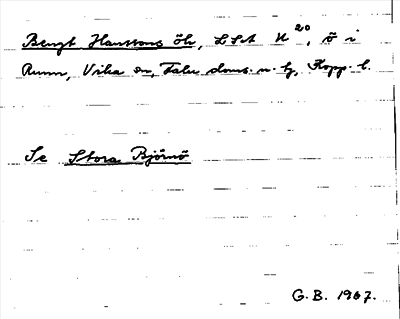 Bengt Hanssons öh, LSA K 20, ö i
Runn, Vika sn, Falu doms. n. tg, Kopp. l.
Se Stora Björnö
G. B. 1967.